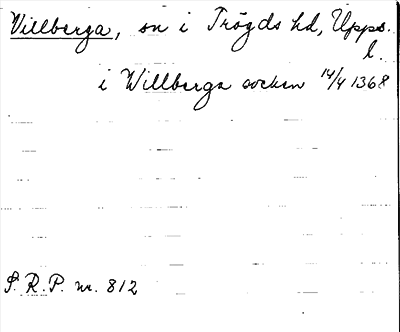 Villberga, sn i Trögds hd, Upps.
l.
i Willberga socken 14/4 1368
S.R.P. nr. 812